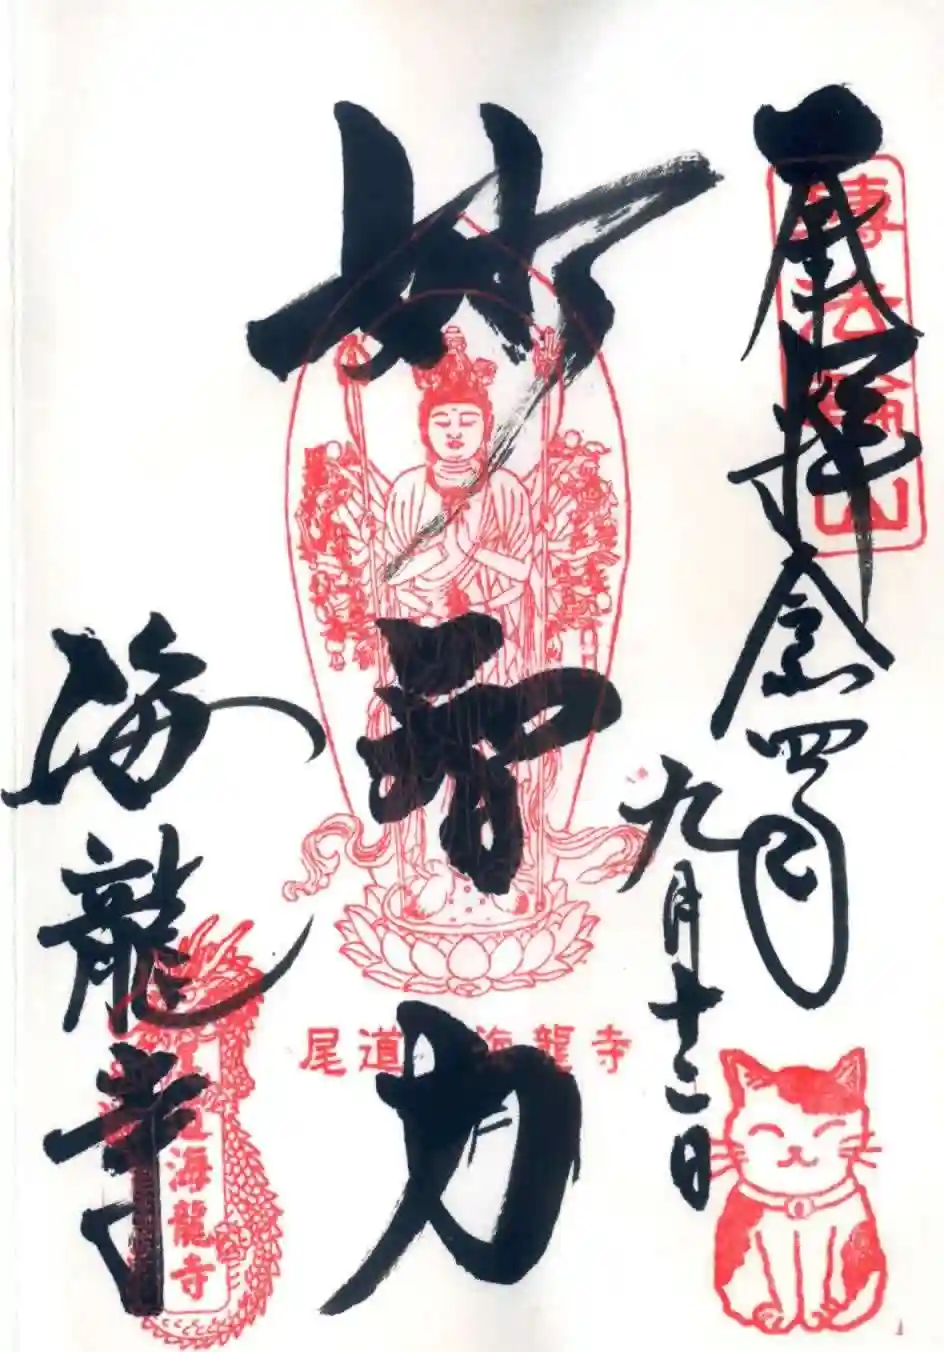 奉拝 令和四年
九月十二日
轉法輪山
妙智力
尾道 海龍寺
海龍寺
海龍寺